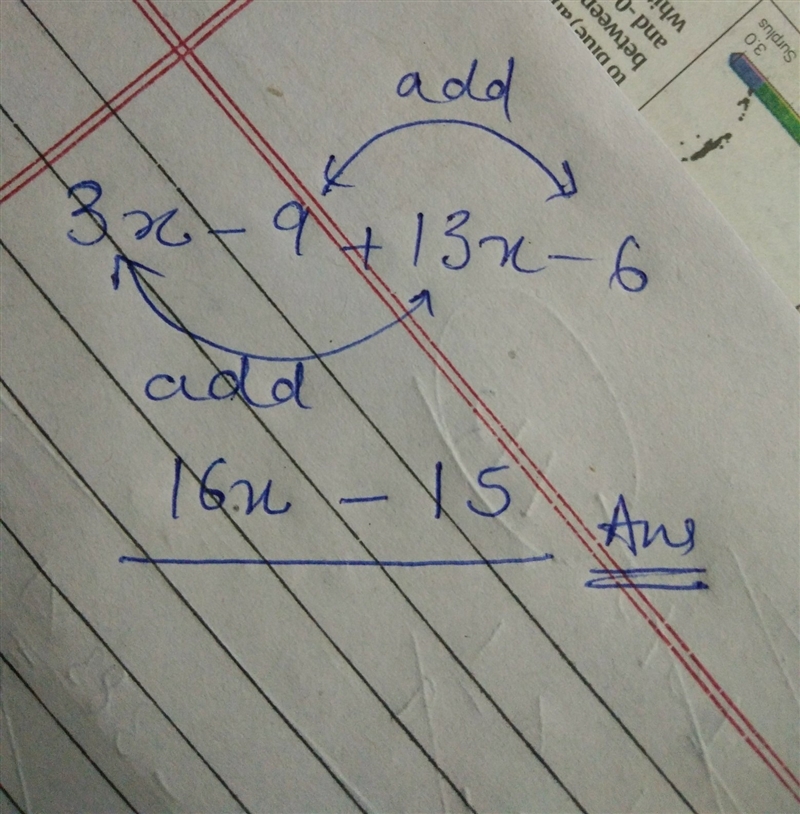 add
3x - 9 + 13x - 6
add
16x - 15 Ans
between
and -0
whi
Surplus
3.0